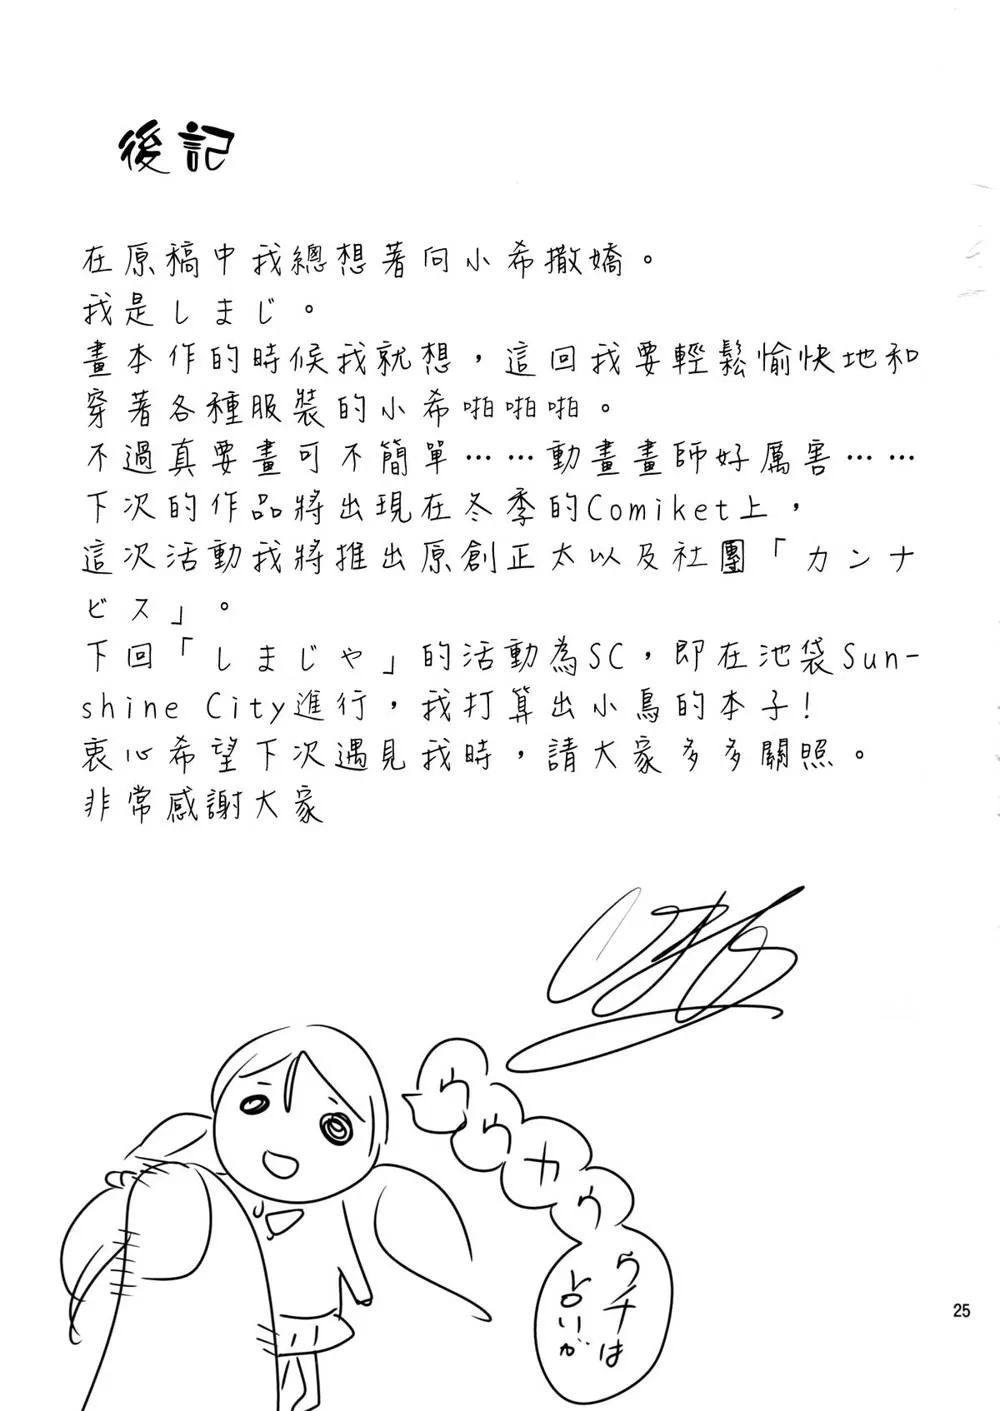 後記
在原稿中我總想著向小希撒嬌。
我是しまじ。
畫本作的時候我就想，這回我要輕鬆愉快地和
穿著各種服裝的小希啪啪啪。
不過真要畫可不簡單……動畫畫師好厲害……
下次的作品將出現在冬季的Comiket上，
這次活動我將推出原創正太以及社團「カンナ
ビス」。
下回「しまじや」的活動為SC，即在池袋Sun-
shine City進行，我打算出小鳥的本子!
衷心希望下次遇見我時，請大家多多關照。
非常感謝大家
ウ
ウウ
カ
ウ
ウチは
占いが
25